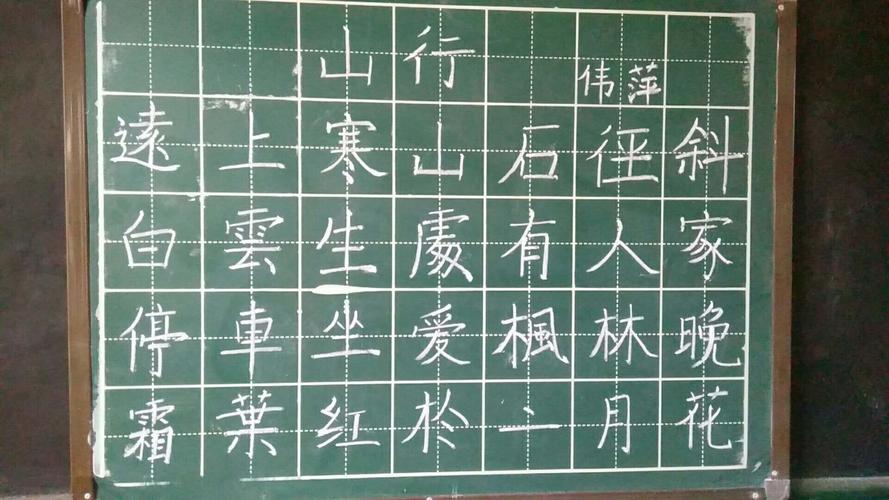 山行 伟萍
遠上寒山石径斜
白雲生處有人家
停車坐愛楓林晚
霜葉红於二月花